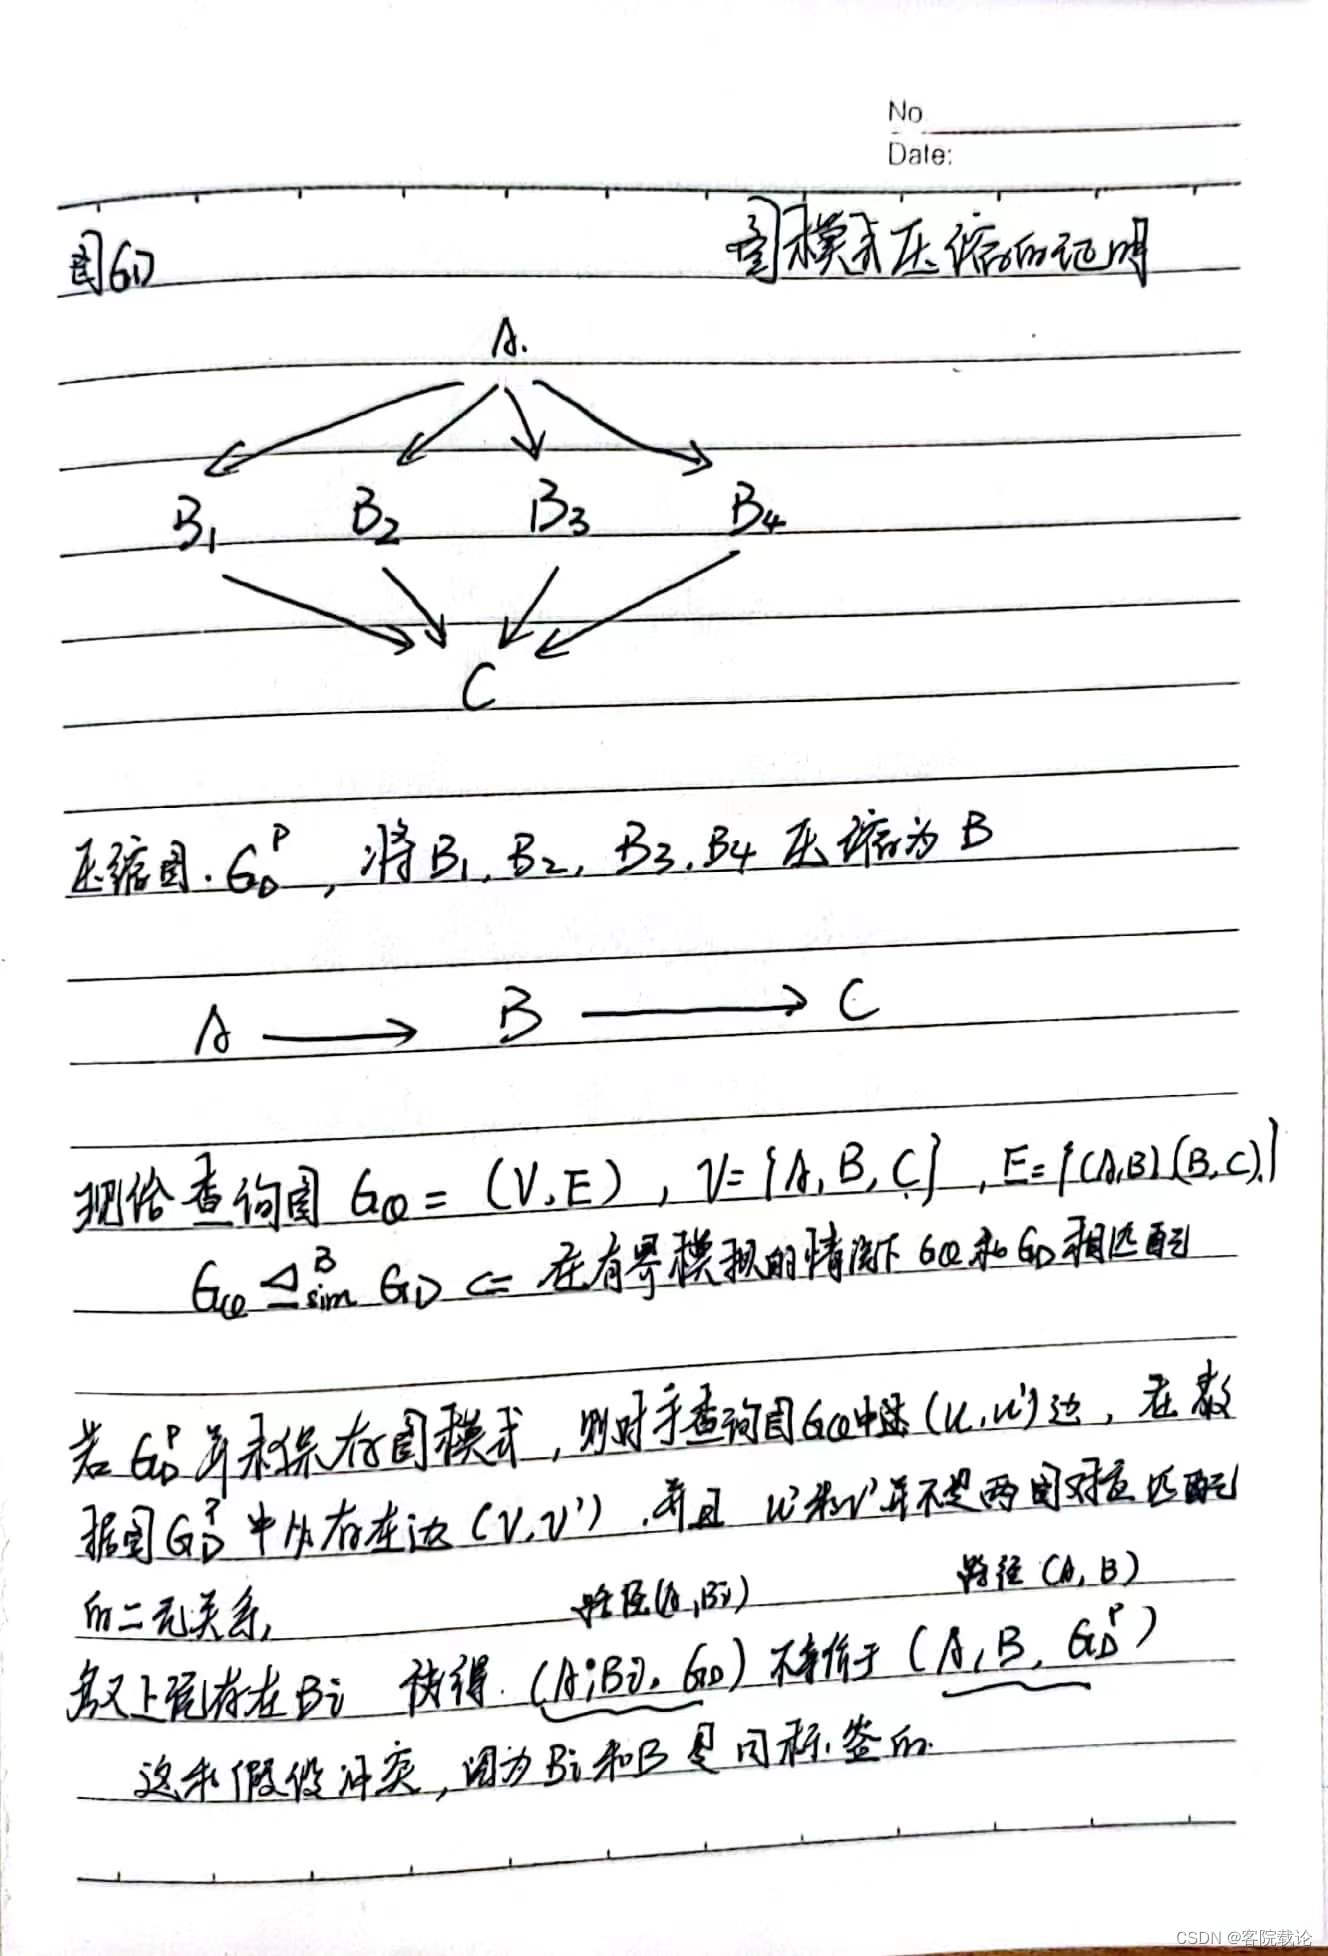 No
Date:
图GD
图模式压缩的证明
A.
B1 B2 B3 B4
C
压缩图. G_D^P , 将B1, B2, B3, B4 压缩为 B
A → B → C
现给查询图 GQ = (V, E) , V={A, B, C} , E={(A,B),(B,C),}
GQ ⊴_sim^B GD <= 在有界模拟的情况下 GQ和GD相匹配
若 G_D^P 并未保存图模式, 则对于查询图GQ中 (u, u') 边, 在数
据图 G_D^P 中 存在边 (v, v') , 并且 u'和v'并不是两图对应匹配
的二元关系,
路径(A, Bi) 路径 (A, B)
存在Bi 使得. (A, Bi, GD) 不等价于 (A, B, G_D^P)
这和假设冲突, 因为 Bi和B 是同标签的.
CSDN @客院载论